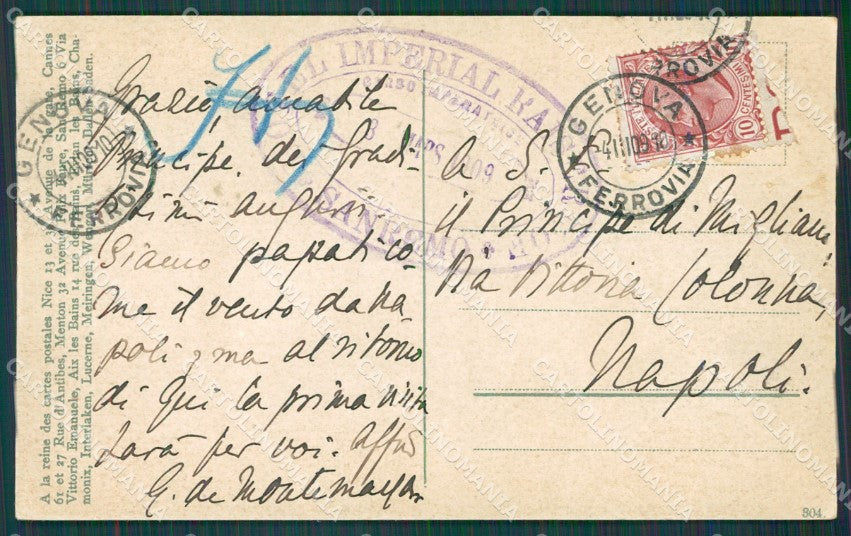 A la reine des cartes postales Nice 13 et Avenue de la gare, Cannes
61 et 27 Rue d'Antibes, Menton 32 Avenue Félix Faure, San Remo 6 Via
Vittorio Emanuele, Aix les Bains 14 rue des Bains, Evian les Bains, Cha-
monix, Interlaken, Lucerne, Meiringen, Baden.
Grazie, amabile
Principe, dei gradi-
tissimi auguri.
Siamo passati co-
me il vento da Na
poli, ma al ritorno
di qui la prima visita
sarà per voi. Affmo
G. de Montemayor
IMPERIAL
MARS 1909
SANREMO
GENOVA
FERROVIA
GENOVA
4 III 09
FERROVIA
FERROVIA
10 CENTESIMI
a S. E.
il Principe di Migliano
Via Vittoria Colonna,
Napoli.
304.
CARTOLINOMANIA